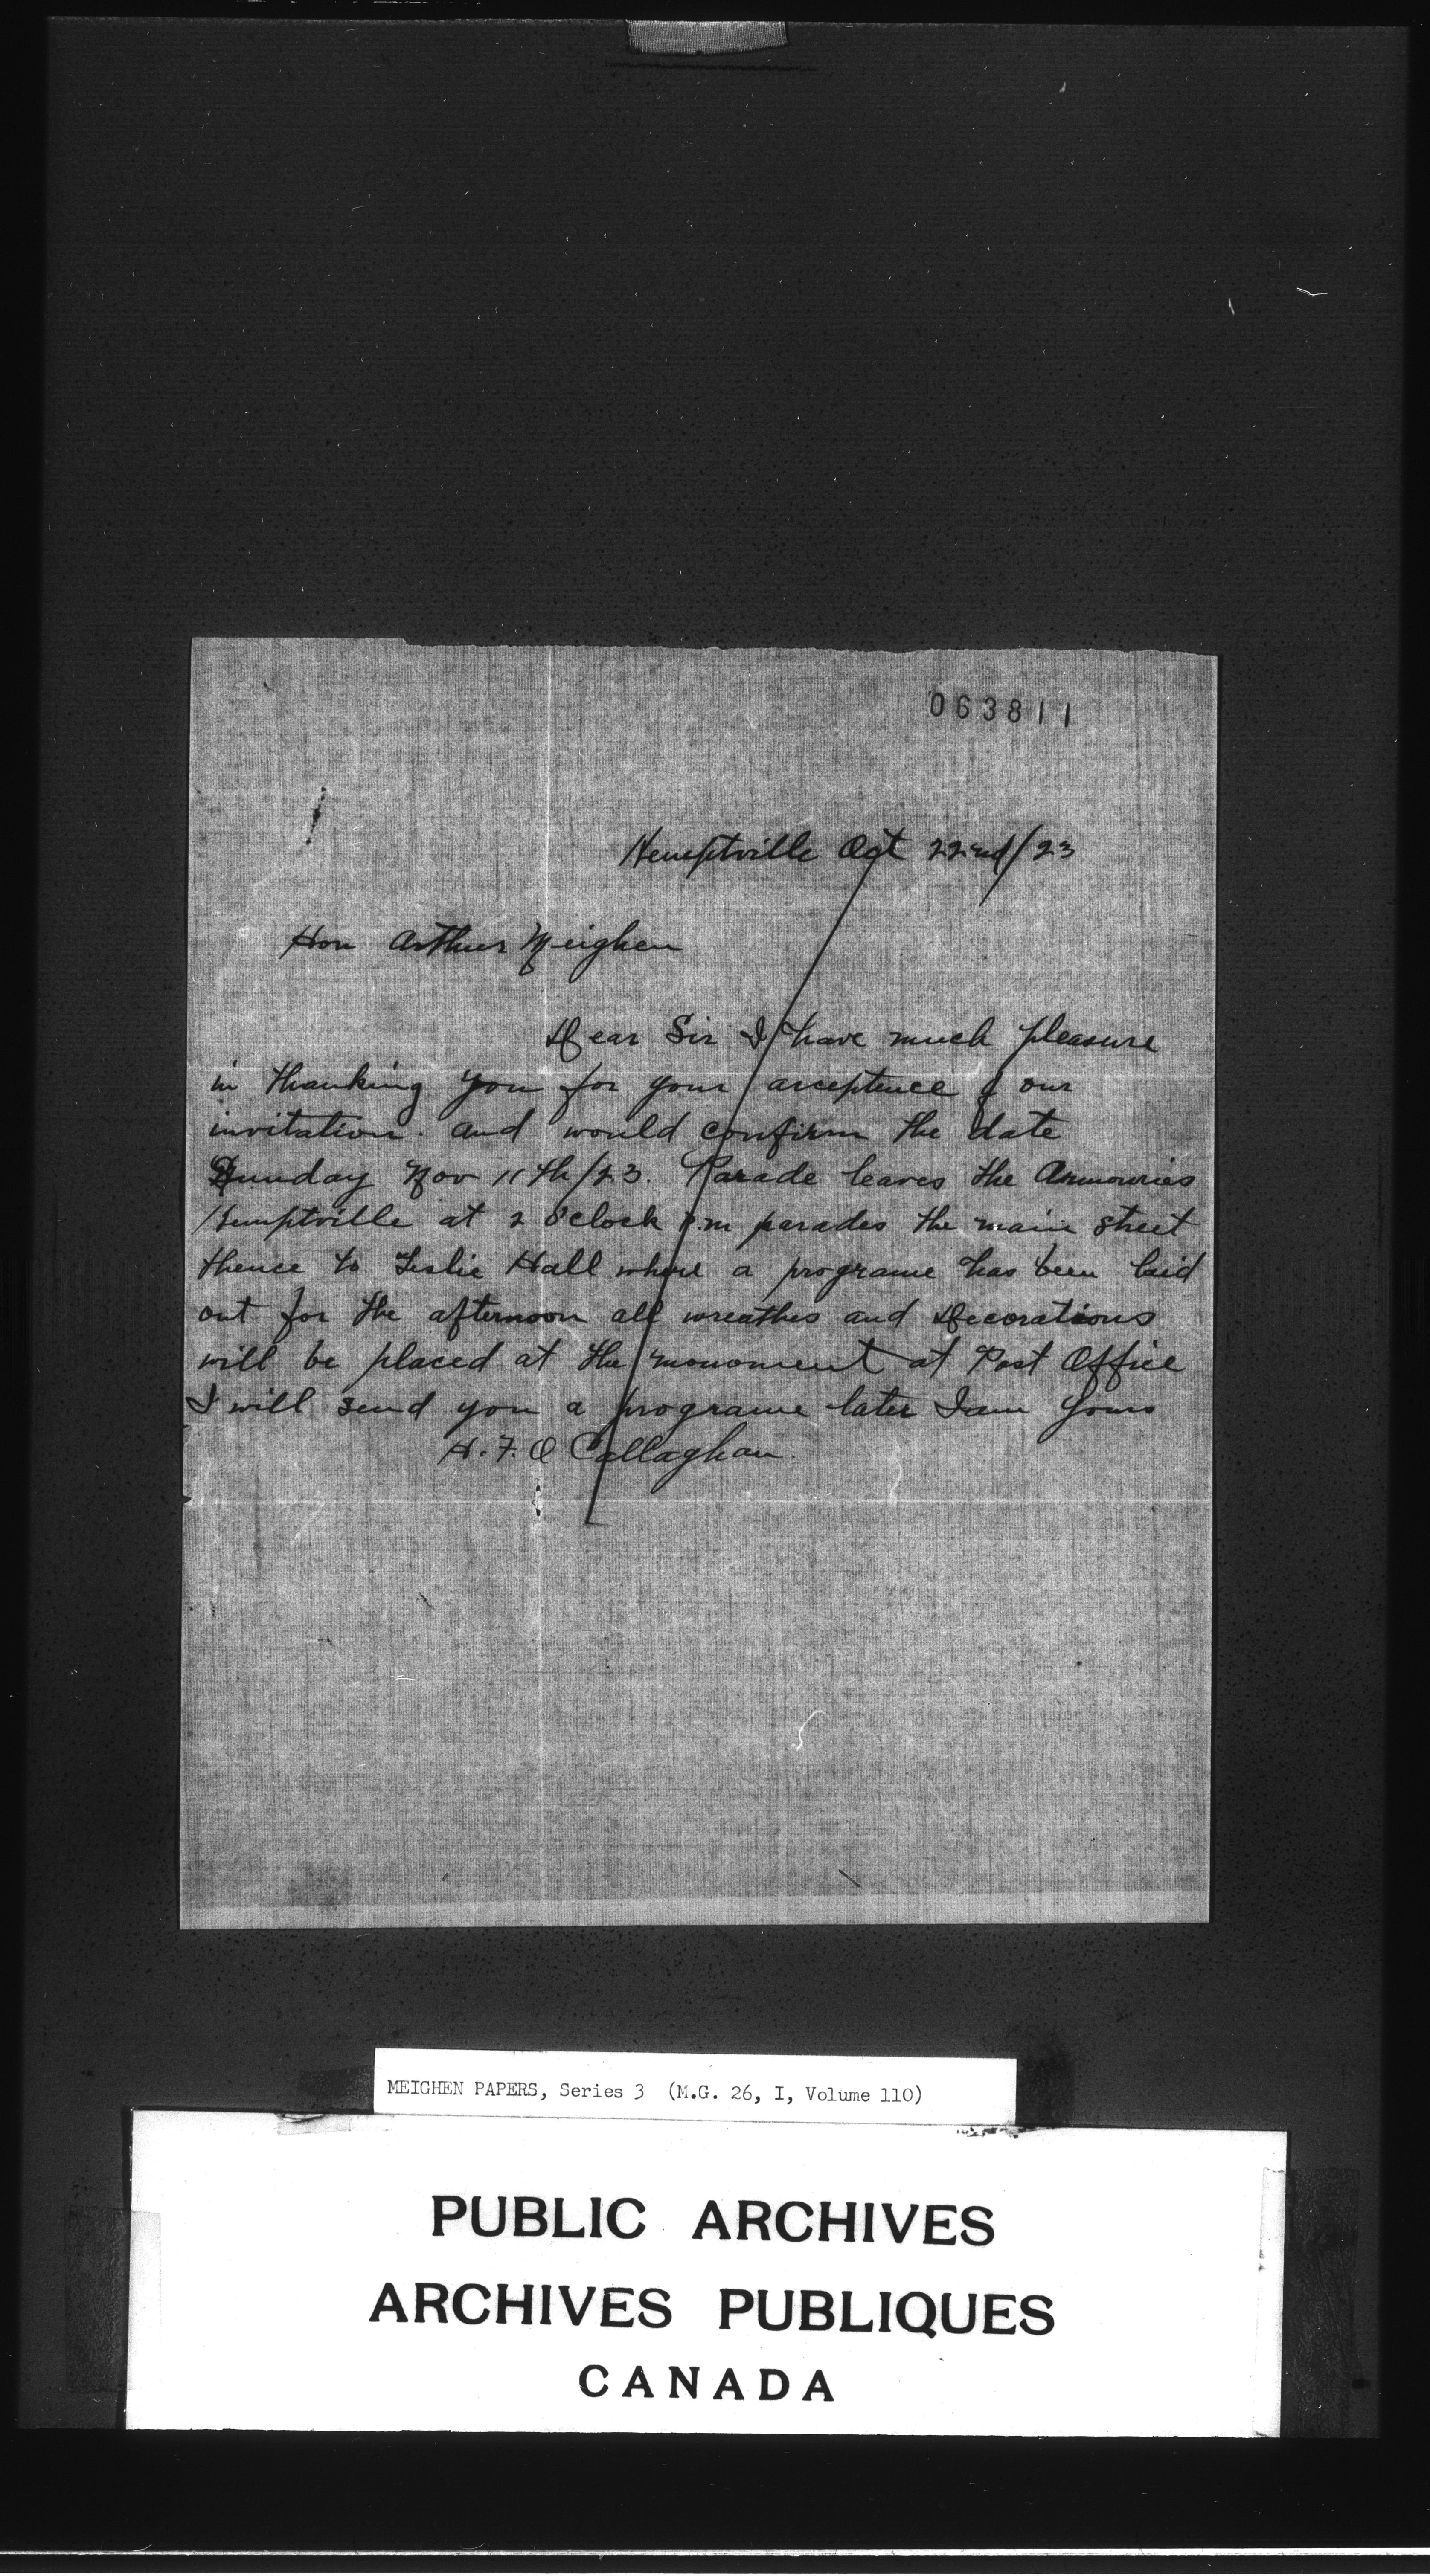 063811
Kemptville Oct 22nd/23
Hon Arthur Meighen
Dear Sir I have much pleasure
in thanking you for your acceptence of our
invitation. and would confirm the date
Sunday Nov 11th/23. Parade leaves the Armouries
Kemptville at 2 o'clock p.m parades the main street
thence to Leslie Hall where a programe has been laid
out for the afternoon all wreathes and Decorations
will be placed at the monoment at Post Office
I will send you a programe later I am Yours
H. F. O Callaghan.
MEIGHEN PAPERS, Series 3 (M.G. 26, I, Volume 110)
PUBLIC ARCHIVES
ARCHIVES PUBLIQUES
CANADA